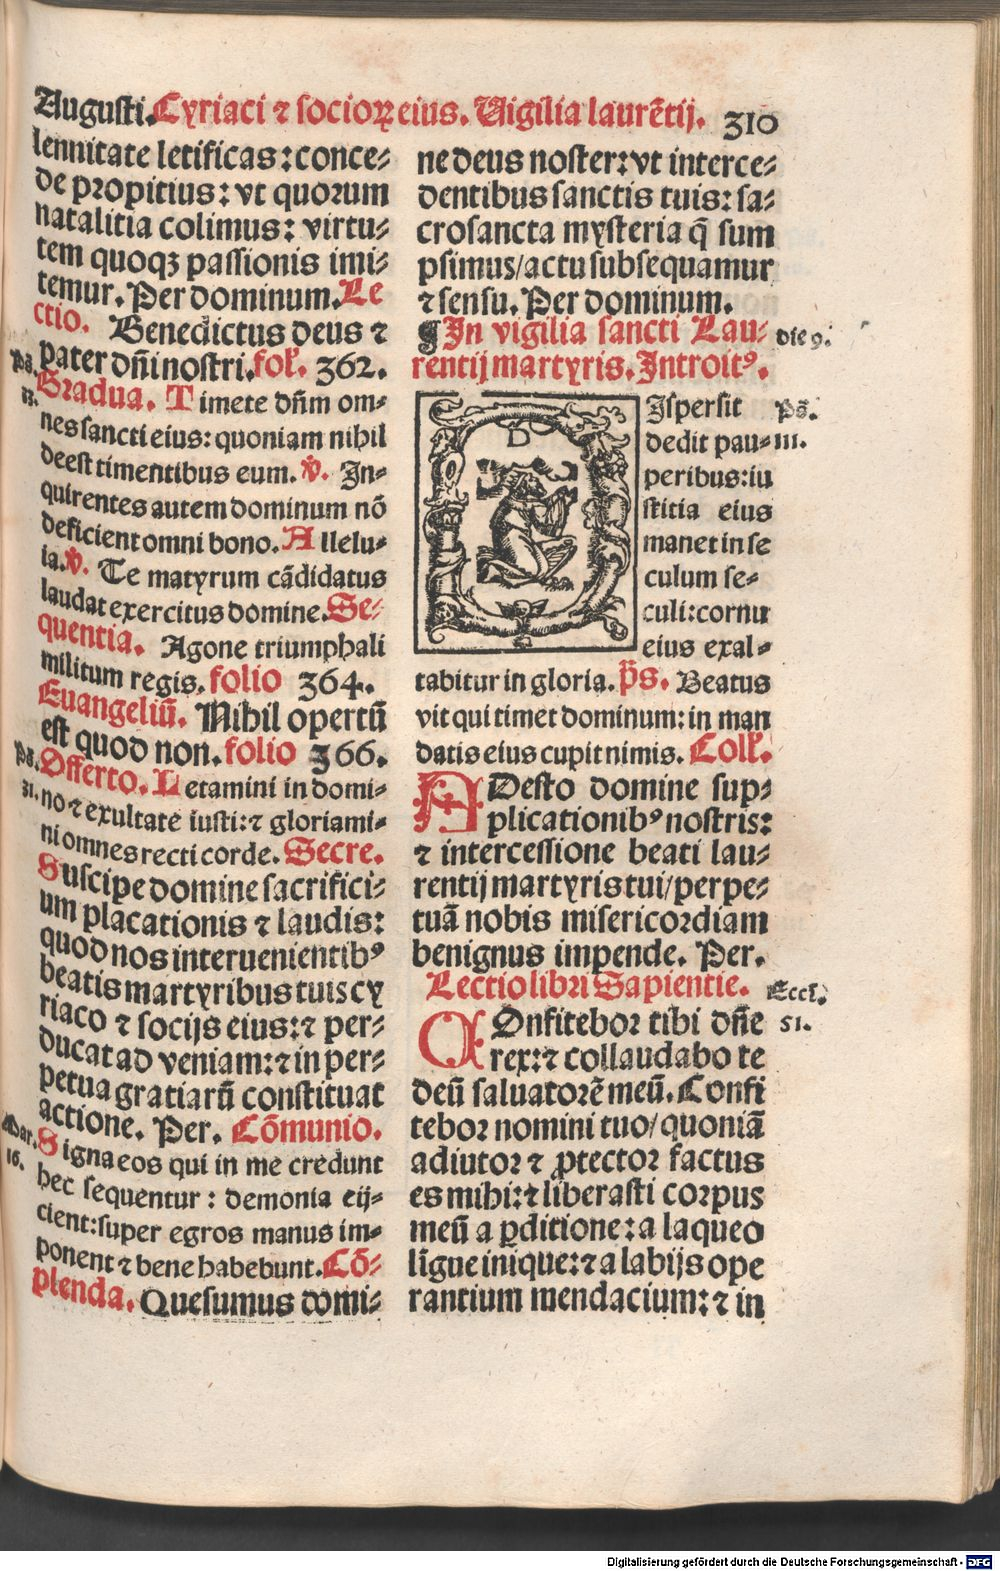 Augusti. Cyriaci ⁊ socioꝝ eius. Uigilia laurētij. 310
lennitate letificas: conce⸗
de propitius: vt quorum
natalitia colimus: virtu⸗
tem quoqꝫ passionis imi⸗
temur. Per dominum. Le
ctio. Benedictus deus ⁊
pater dñi nostri. fol. 362.
Ps. 33.
Gradua. Timete dñm om⸗
nes sancti eius: quoniam nihil
deest timentibus eum. ℣. In⸗
quirentes autem dominum nō
deficient omni bono. Allelu⸗
ia. ℣. Te matyrum cādidatus
laudat exercitus domine. Se⸗
quentia. Agone triumphali
militum regis. folio 364.
Euangeliū. Nihil opertū
est quod non. folio 366.
Ps. 31.
Offerto. Letamini in domi⸗
no ⁊ exultate iusti: ⁊ gloriami⸗
ni omnes recti corde. Secre.
Suscipe domine sacrifici⸗
um placationis ⁊ laudis:
quod nos interuenientibꝰ
beatis martyribus tuis cy
riaco ⁊ socijs eius: ⁊ per⸗
ducat ad veniam: ⁊ in per⸗
petua gratiarū constituat
actione. Per. Cōmunio.
Mar. 16.
Signa eos qui in me credunt
hec sequentur: demonia eij⸗
cient: super egros manus im⸗
ponent ⁊ bene habebunt. Cō⸗
plenda. Quesumus domi⸗
ne deus noster: vt interce⸗
dentibus sanctis tuis: sa⸗
crosancta mysteria q̄ sum
psimus/ actu subsequamur
⁊ sensu. Per dominum.
¶ In vigilia sancti Lau⸗ die 9.
rentij martyris. Introitꝰ.
DIspersit Ps.
dedit pau⸗ 111.
peribus: iu
stitia eius
manet in se
culum se⸗
culi: cornu
eius exal⸗
tabitur in gloria. ps. Beatus
vit qui timet dominum: in man
datis eius cupit nimis. Coll.
ADesto domine sup⸗
plicationibꝰ nostris:
⁊ intercessione beati lau⸗
rentij martyris tui/ perpe⸗
tuā nobis misericordiam
benignus impende. Per.
Lectio libri Sapientie. Eccl.
COnfitebor tibi dñe 51.
rex: ⁊ collaudabo te
deū saluatorē meū. Confi
tebor nomini tuo/ quoniā
adiutor ⁊ ꝓtector factus
es mihi: ⁊ liberasti corpus
meū a ꝑditione: a laqueo
līgue inique: ⁊ a labijs ope
rantium mendacium: ⁊ in
Digitalisierung gefördert durch die Deutsche Forschungsgemeinschaft - DFG